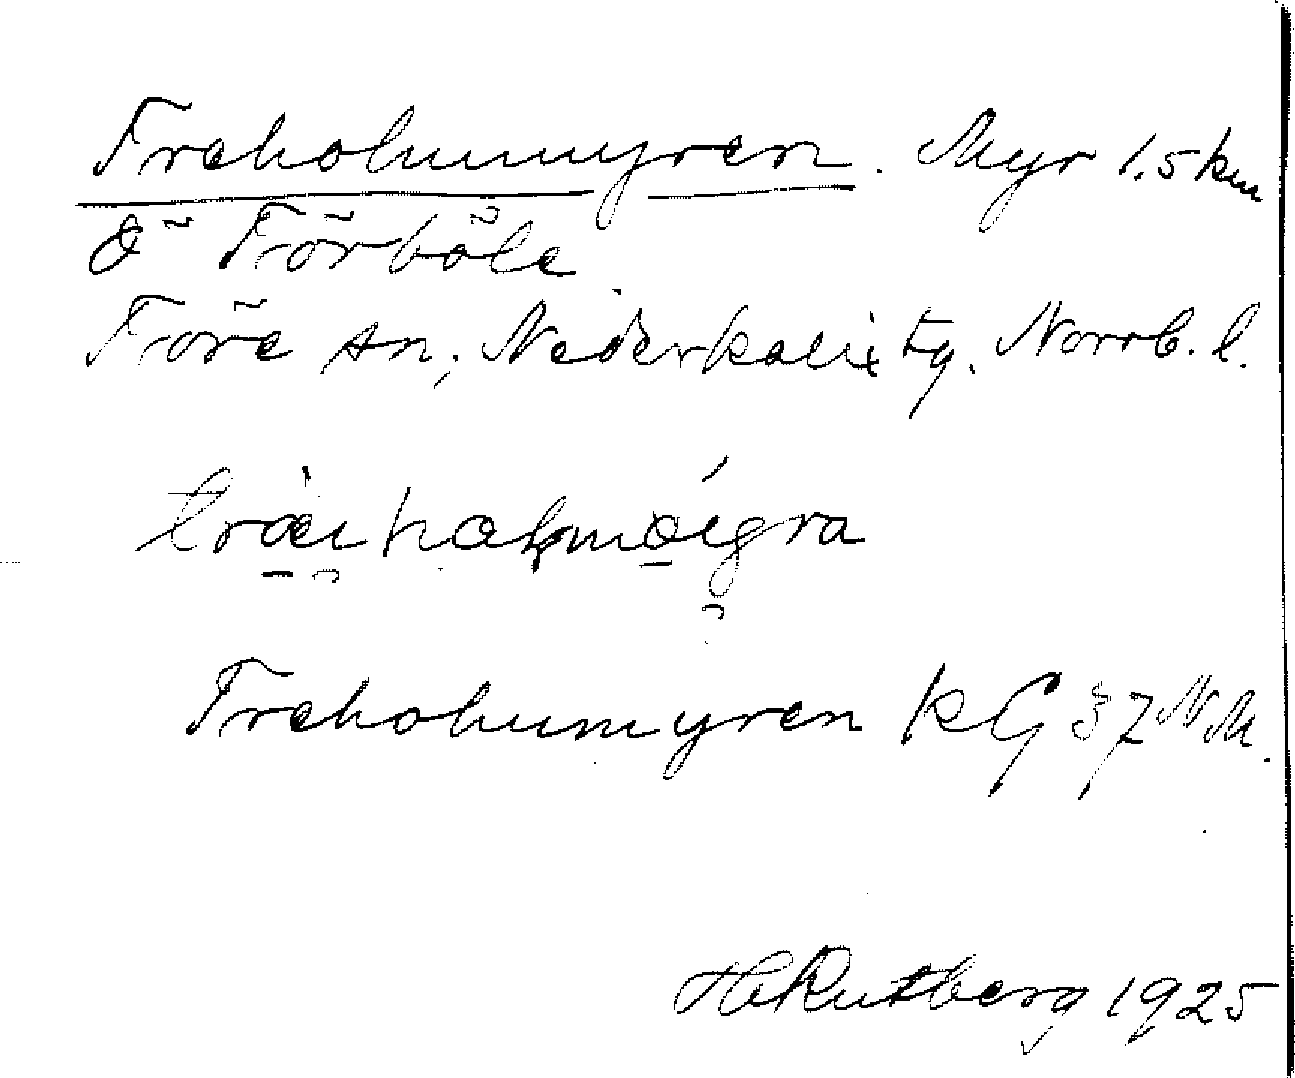 Treholmmyren. Myr 1,5 km
ö Törböle
Töre sn, Nederkalix tg. Norrb. l.
Treholmmyren KG 37 N.M.
H Rutberg 1925